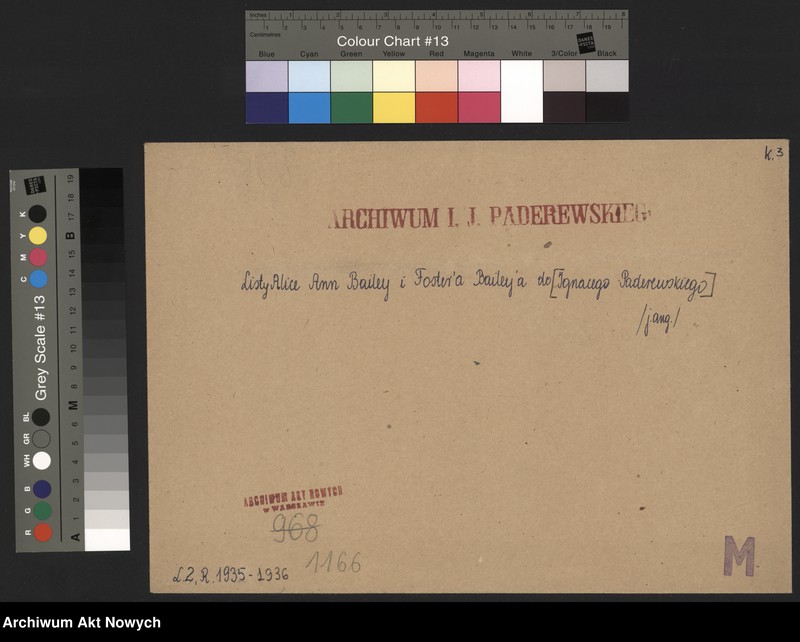 Inches 1 2 3 4 5 6 7 8
Centimetres 1 2 3 4 5 6 7 8 9 10 11 12 13 14 15 16 17 18 19
Colour Chart #13
DANES PICTA
Blue Cyan Green Yellow Red Magenta White 3/Color Black
k.3
ARCHIWUM I. J. PADEREWSKIEG
Listy Alice Ann Bailey i Foster'a Bailey'a do [Ignacego Paderewskiego]
/j. ang./
ARCHIWUM AKT NOWYCH
w WARSZAWIE
968
1166
L.2, R. 1935-1936
M
Grey Scale #13
DANES PICTA
R G B WH GR BL C M Y K
A 1 2 3 4 5 6 M 8 9 10 11 12 13 14 15 B 17 18 19
Archiwum Akt Nowych